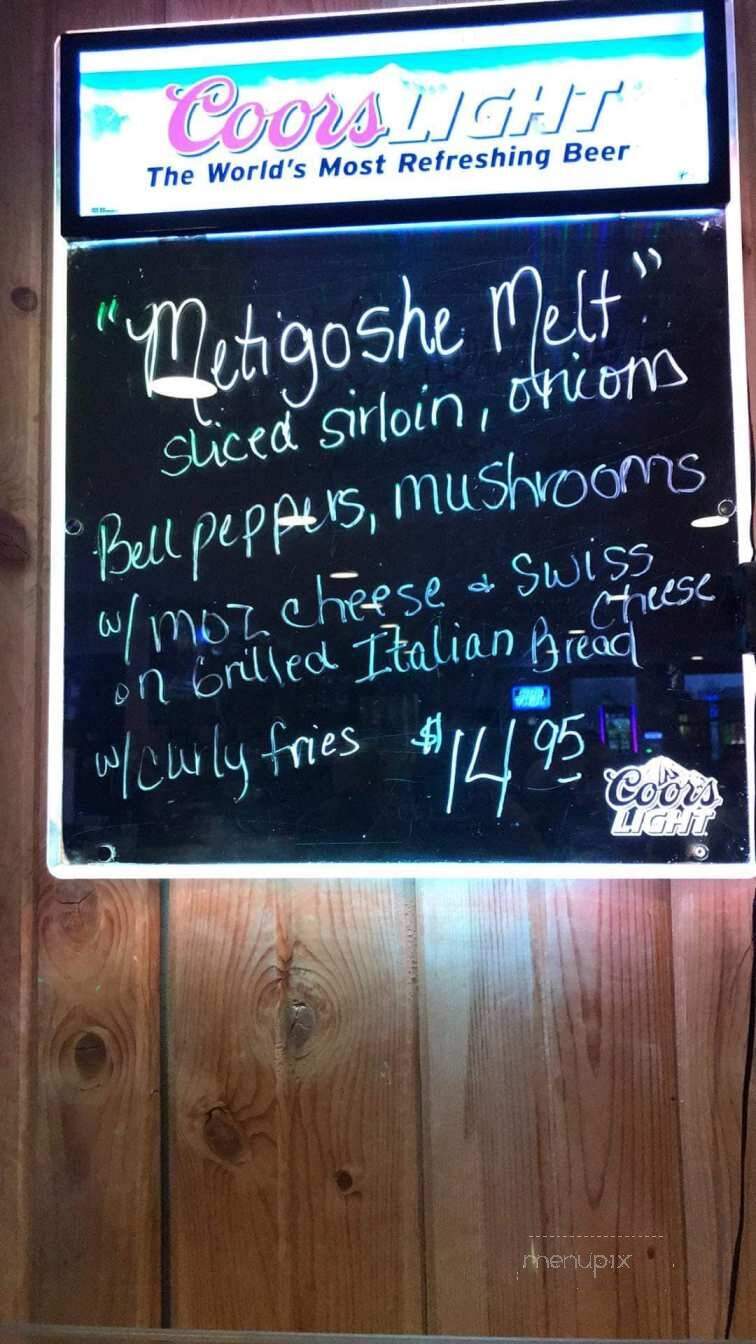 Coors LIGHT
The World's Most Refreshing Beer
"Metigoshe Melt"
sliced sirloin, onions
Bell peppers, mushrooms
w/ moz cheese & Swiss
cheese
on Grilled Italian Bread
w/ curly fries $14.95
Coors
LIGHT
menupix